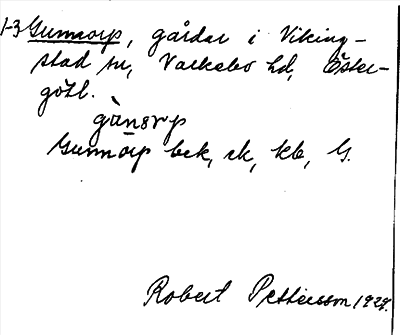 1-3 Gunnorp, gårdar i Viking-
stad sn, Valkebo hd, Öster-
götl.
gùnərp
Gunnorp bek, rk, kb, G.
Robert Pettersson 1929.